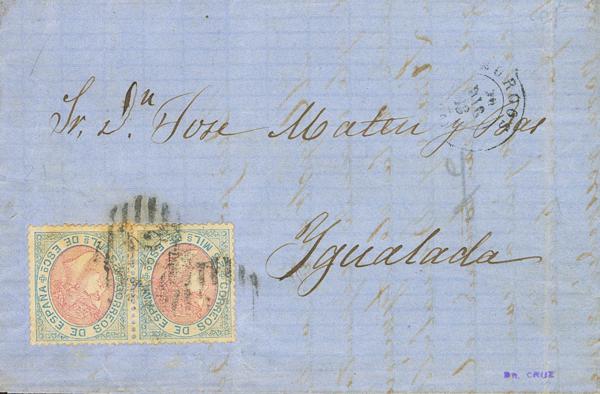 BURGOS
Sr. Dn Jose Mateu y
Igualada
CORREOS DE ESPAÑA MILS DE ESCO
CORREOS DE ESPAÑA MILS DE ESCO
DR. CRUZ